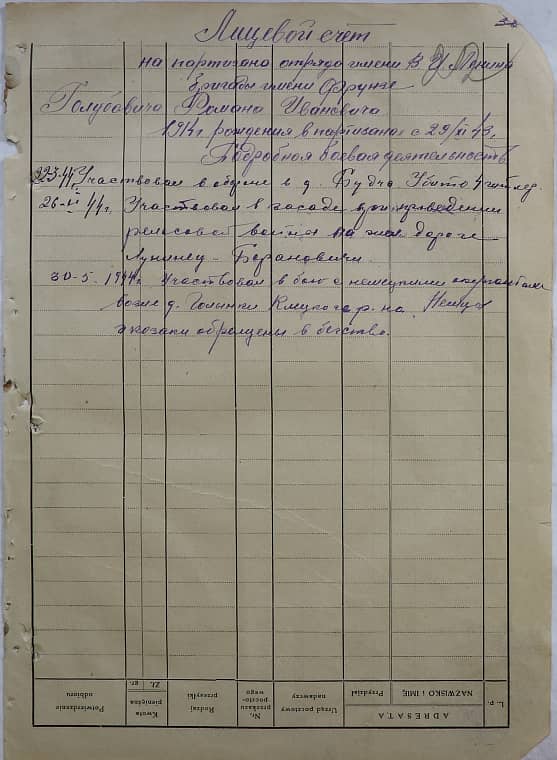 Лицевой счет
на партизана отряда имени В. И. Ленина
Бригады имени Фрунзе
Голубовича Романа Ивановича
1914г рождения в партизанах с 29/XI 43г.
Подробная боевая деятельность
22.3.44г. Участвовал в обороне в д. Будча Убито 4 гитлер.
26-VI 44г. Участвовал в засаде при проведении
рельсовой войны на жел дороге
Лунинец-Барановичи.
30-5. 1944г. Участвовал в бою с немецкими
возле д. Голынки Клецкого р-на. Немцы
и козаки обращены в бегство.
L. p.
ADRESATA
NAZWISKO I IMIĘ
Przydział
Urząd pocztowy nadawczy
Nr. przekazu poczto-wego
Rodzaj przesyłki
Kwota pieniężna
Zł. gr.
Potwierdzenie odbioru